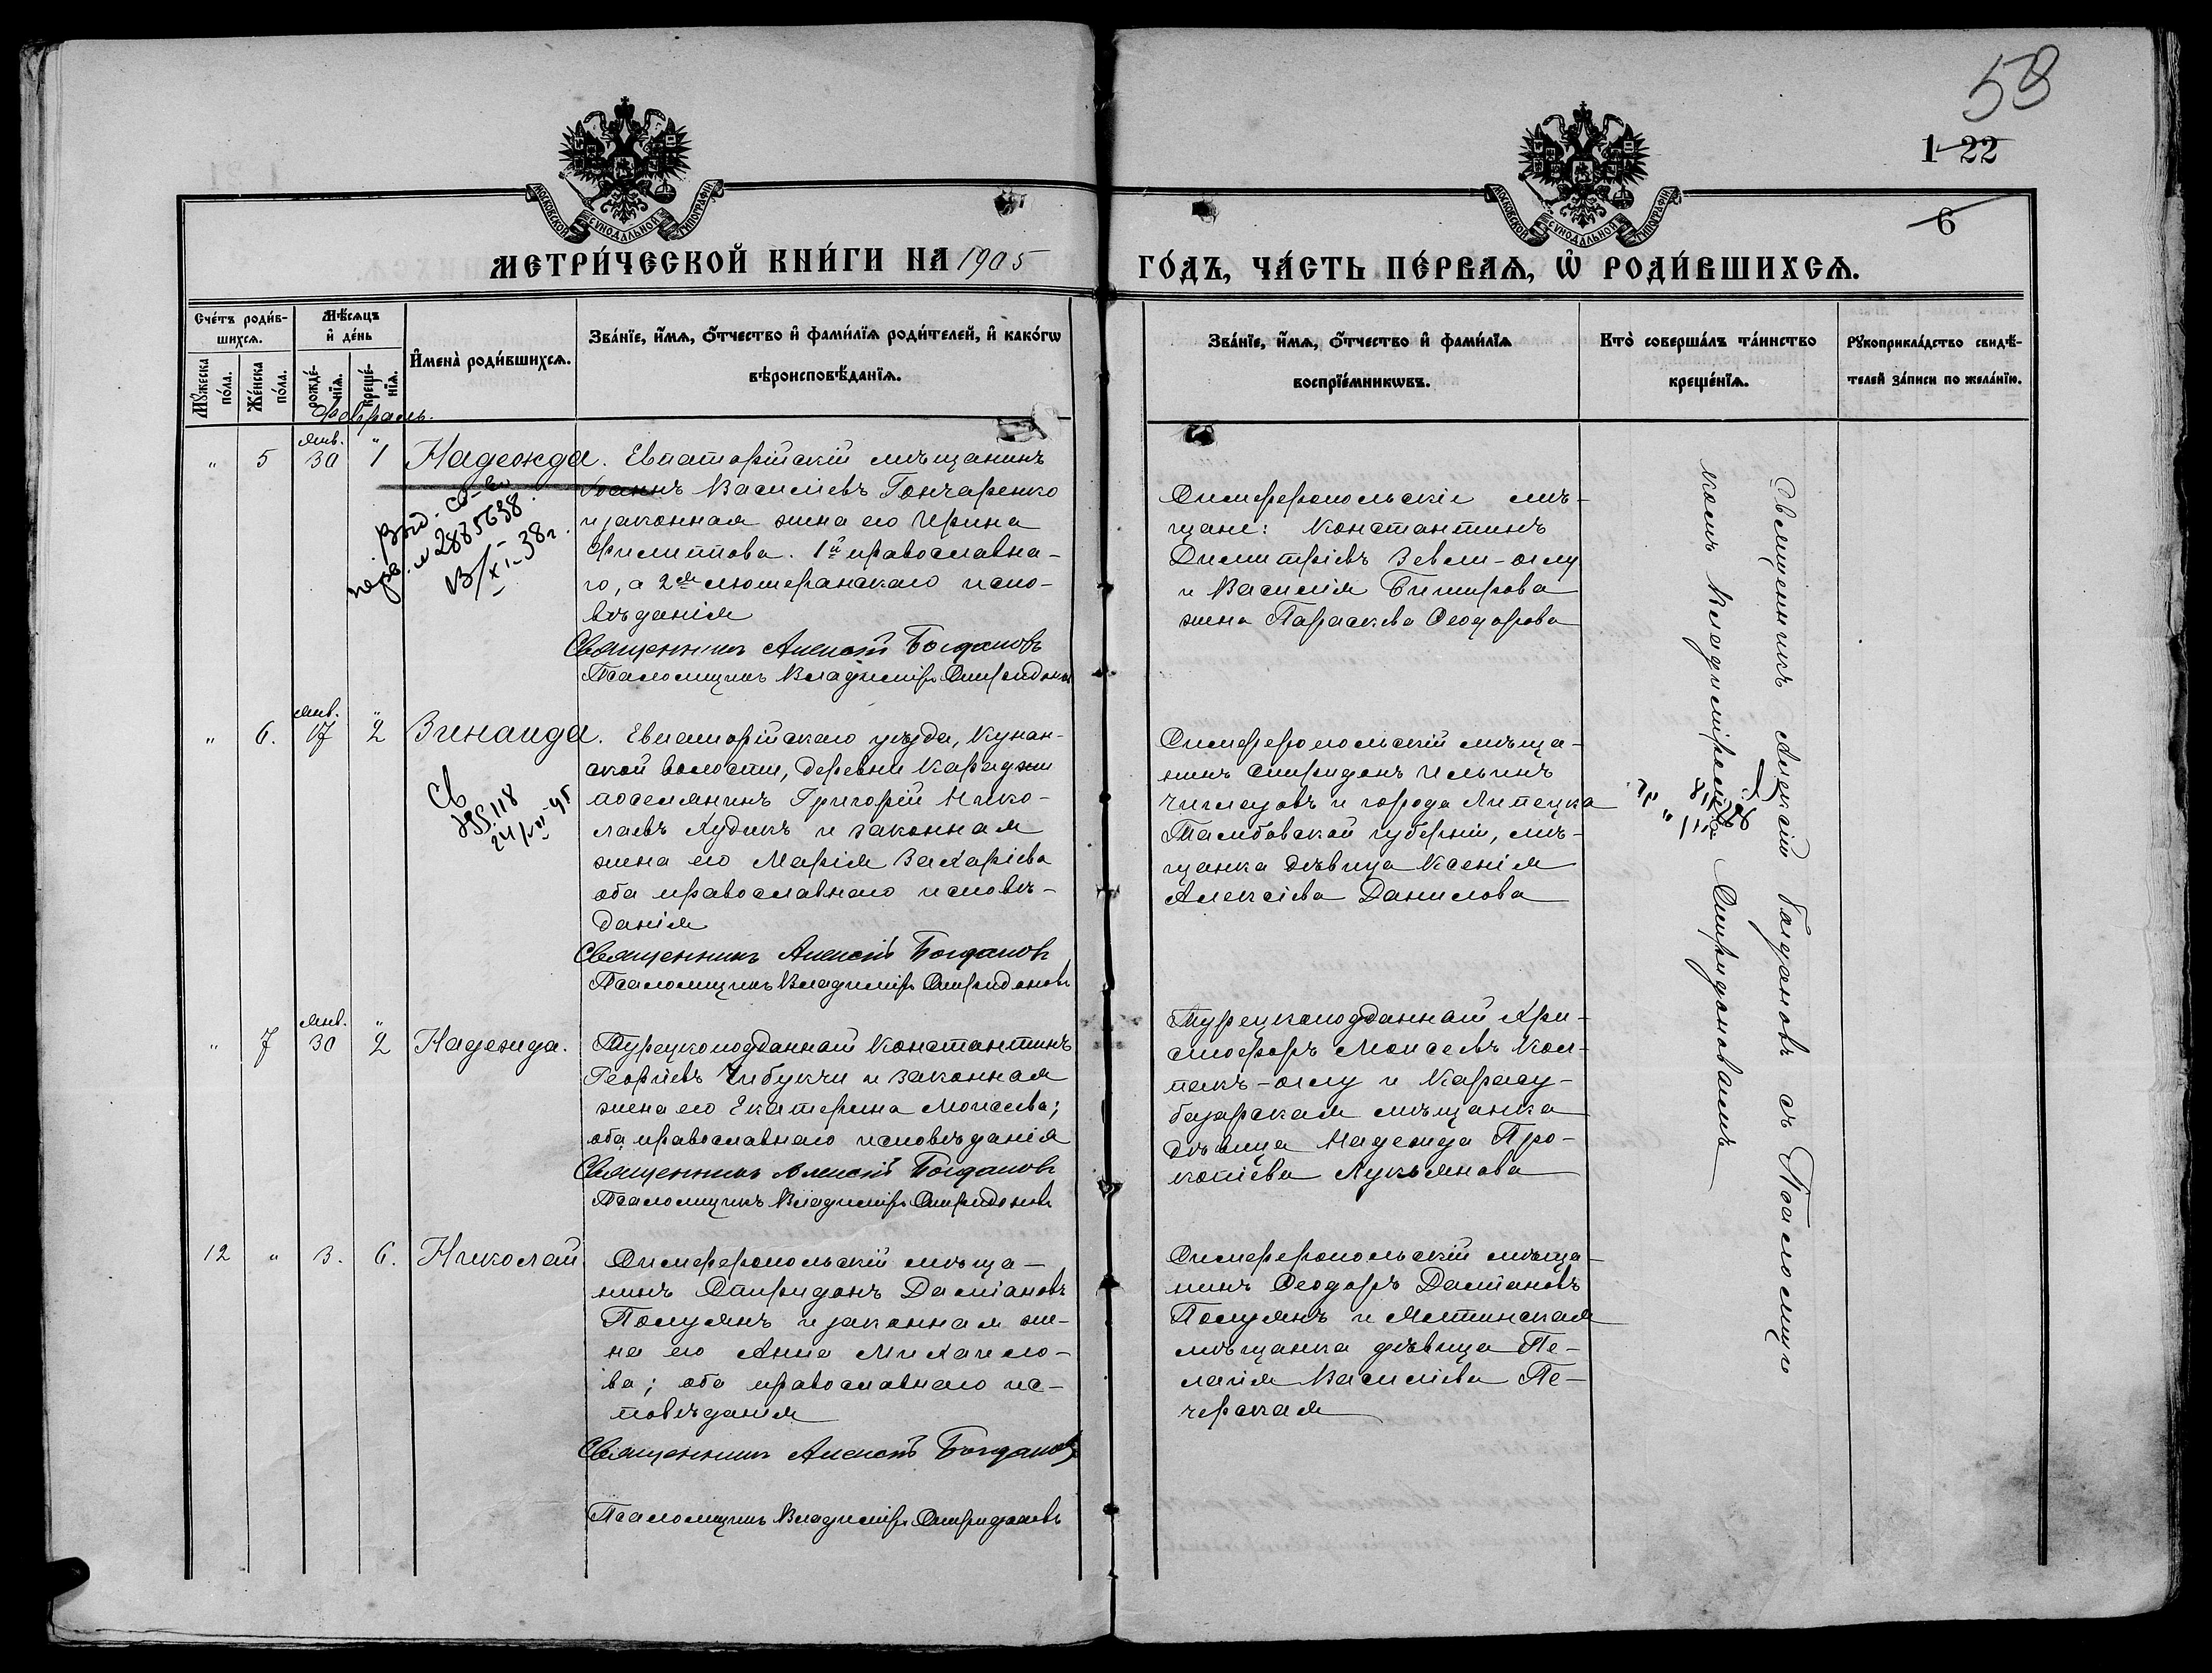 58
1 22
6
МОСКОВСКОЙ СѴНОДАЛЬНОЙ ТИПОГРАФІИ
МОСКОВСКОЙ СѴНОДАЛЬНОЙ ТИПОГРАФІИ
МЕТРИ́ЧЕСКОЙ КНИ́ГИ НА 1905
ГО́ДЪ, ЧА́СТЬ ПЕ́РВАѦ, Ѽ РОДИ́ВШИХСѦ.
Сче́тъ роди́в-
шихсѧ.
Мꙋ́жеска
по́ла.
Же́нска
по́ла.
Мѣ́сѧцъ
и҆ де́нь
рожде́-
нїѧ.
креще́-
нїѧ.
И҆мена̀ роди́вшихсѧ.
Зва́нїе, и҆́мѧ, ѻ҆́тчество и҆ фами́лїѧ роди́телей, и҆ како́гѡ
вѣроисповѣ́данїѧ.
Зва́нїе, и҆́мѧ, ѻ҆́тчество и҆ фами́лїѧ
воспрїе́мникѡвъ.
Кто̀ соверша́лъ та́инство
креще́нїѧ.
Рꙋкоприкла́дство свидѣ́-
телей за́писи по жела́нїю.
Февраль.
" 5 Янв. 30 " 1 Надежда.
Евпаторійскій мѣщанинъ
Іоаннъ Васильевъ Гончаренко
и законная жена его Ирина
Филиппова. 1й православна-
го, а 2я лютеранскаго испо-
вѣданія
Священникъ Алексій Богдановъ
Псаломщикъ Владиміръ Спиридоновъ
Выд. св-во
№ 2885638.
В/XI-38г.
Симферопольскіе мѣ-
щане: Константинъ
Димитріевъ Зевли-оглу
и Василія Бишрова
жена Параскева Ѳеодорова
" 6. Янв. 17 " 2 Зинаида.
Евпаторійскаго уѣзда, Кунан-
ской волости, деревни Караджи
поселянинъ Григорій Нико-
лаевъ Худикъ и законная
жена его Марія Захаріева
оба православнаго исповѣ-
данія
Священникъ Алексій Богдановъ
Псаломщикъ Владиміръ Спиридоновъ
Св
24/VII-45
Симферопольскій мѣща-
нинъ Спиридонъ Ильинъ
и города Липецка
Тамбовской губерніи, мѣ-
щанка дѣвица Ксенія
Алексіева Данилова
" 7 Янв. 30 " 2 Надежда.
Турецкоподданный Константинъ
Георгіевъ Чибукчи и законная
жена его Екатерина Моисеева;
оба православнаго исповѣданія
Священникъ Алексій Богдановъ
Псаломщикъ Владиміръ Спиридоновъ
Турецкоподданный Хри-
стофоръ Моисеевъ Кол-
пакъ-оглу и Карасу-
базарская мѣщанка
дѣвица Надежда Про-
копіева Лукьянова
12 " 3. 6. Николай
Симферопольскій мѣща-
нинъ Спиридонъ Даміановъ
Полуянъ и законная же-
на его Анна Михаило-
ва; оба православнаго ис-
повѣданія
Священникъ Алексій Богдановъ
Псаломщикъ Владиміръ Спиридоновъ
Симферопольскій мѣща-
нинъ Ѳеодоръ Даміановъ
Полуянъ и Ялтинская
мѣщанка дѣвица Пе-
лагія Василіева Пе-
черская
Священникъ Алексій Богдановъ съ Псаломщи
комъ Владиміромъ Спиридоновымъ